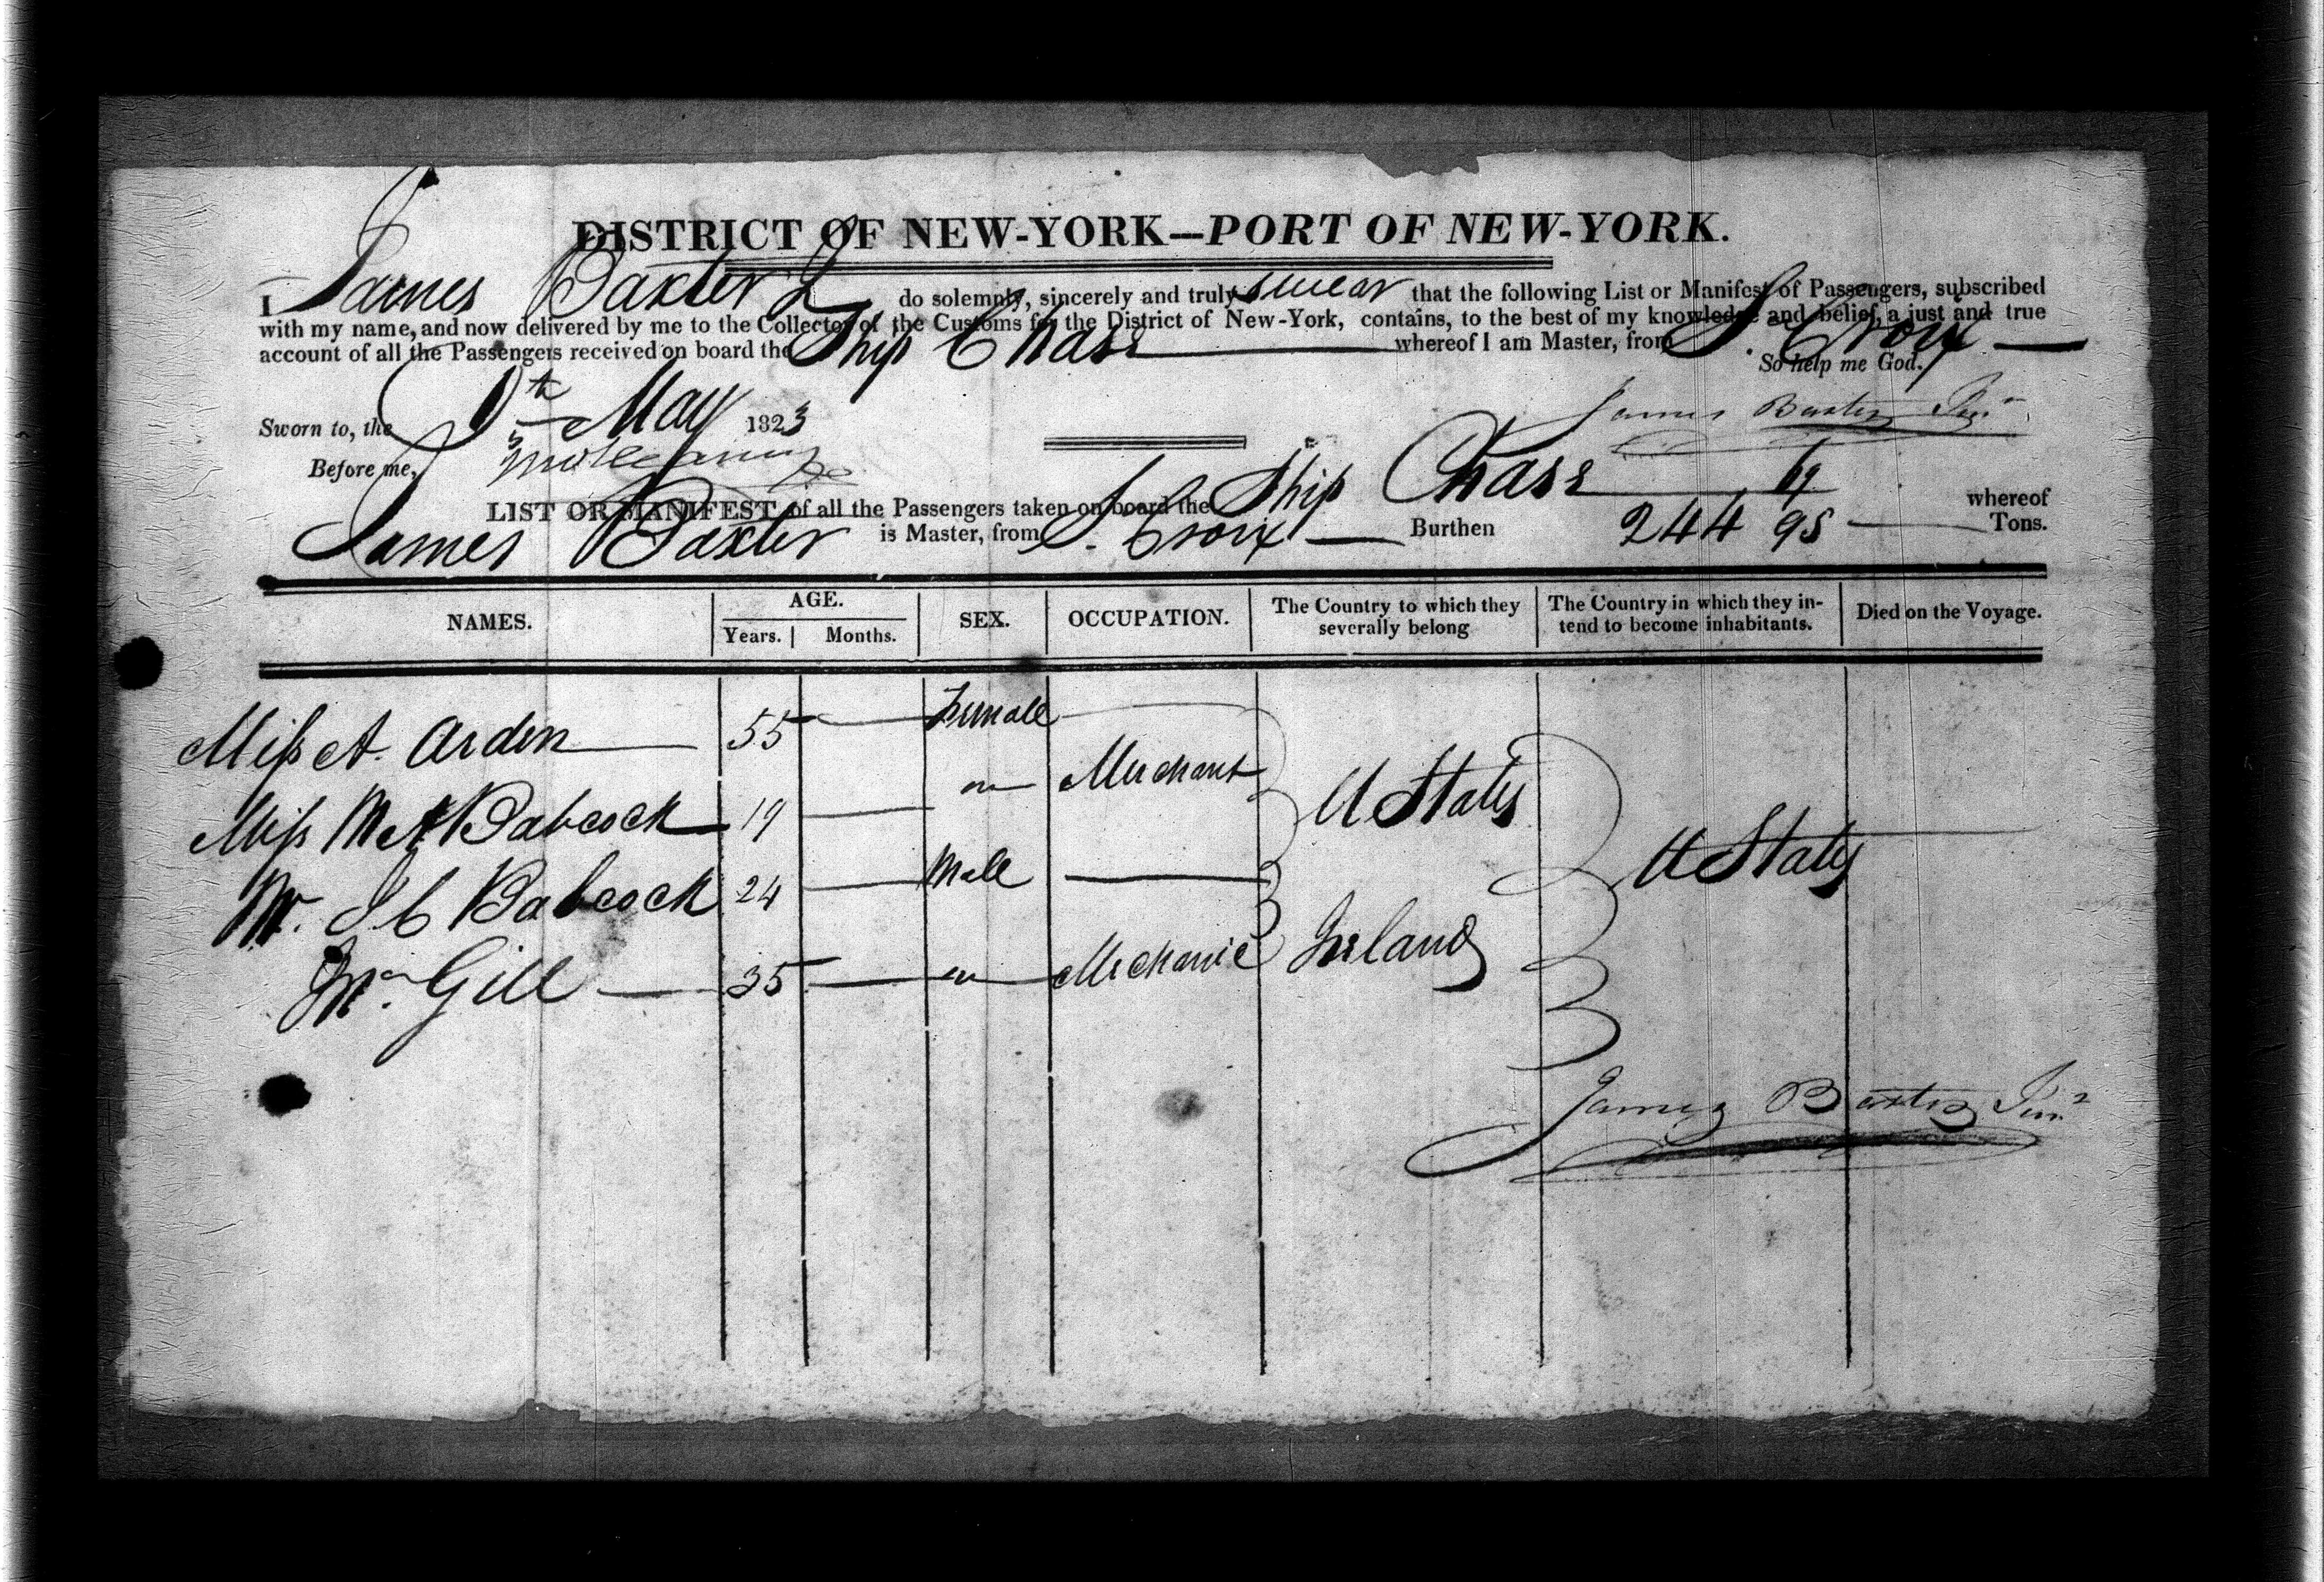 DISTRICT OF NEW-YORK—PORT OF NEW-YORK.
I James Baxter J do solemnly, sincerely and truly swear that the following List or Manifest of Passengers, subscribed
with my name, and now delivered by me to the Collector of the Customs for the District of New-York, contains, to the best of my knowledge and belief, a just and true
account of all the Passengers received on board the Ship Chase whereof I am Master, from S. Croix
So help me God.
Sworn to, the th May 1823
James Baxter Junr
Before me,
LIST OR MANIFEST of all the Passengers taken on board the Ship Chase whereof
James Baxter is Master, from S. Croix Burthen 244 69/95 Tons.
NAMES. AGE. Years. Months. SEX. OCCUPATION. The Country to which they severally belong The Country in which they intend to become inhabitants. Died on the Voyage.
Miss A. Arden 55 — Female
Miss M A Babcock 19 — Merchant U States
Mr. J C Babcock 24 — Male — U States
Mr. Gill — 35 — Mechanic Ireland
James Baxter Junr